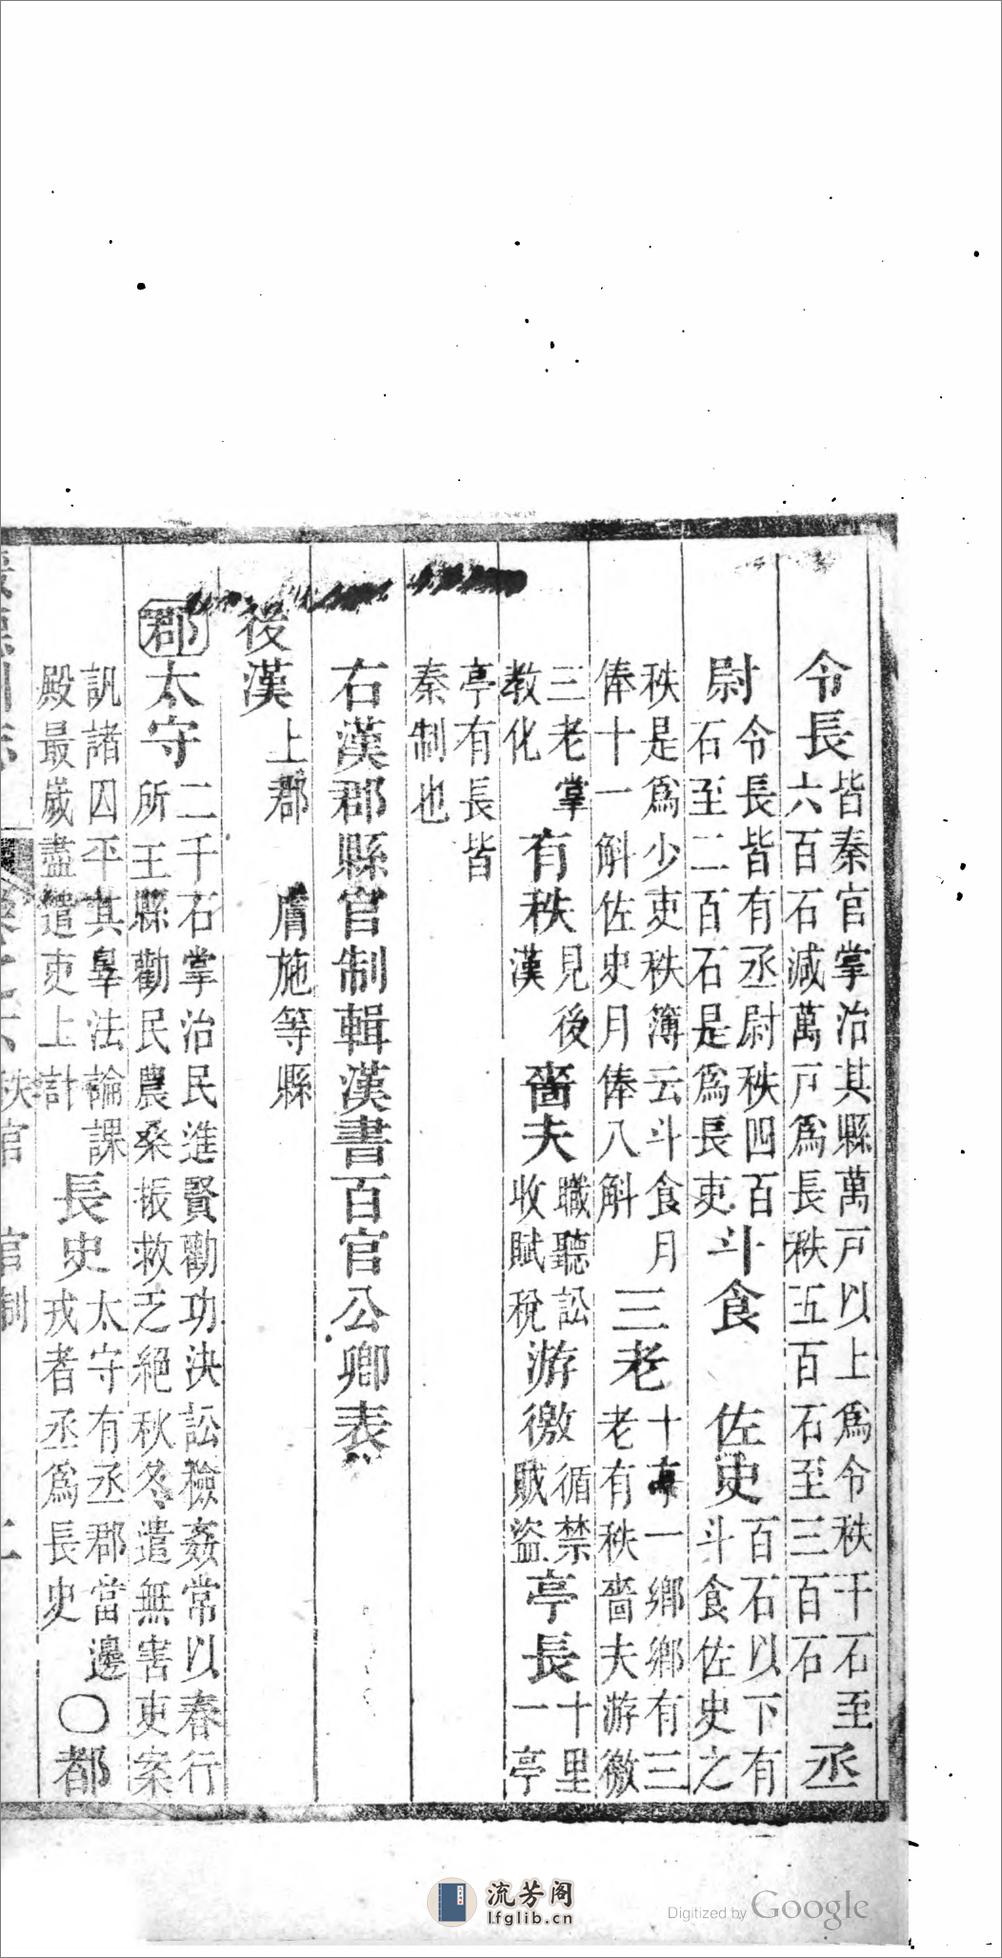 令長皆秦官掌治其縣萬戸以上爲令秩千石至六百石減萬戸爲長秩五百石至三百石丞
尉令長皆有丞尉秩四百石至二百石是爲長吏斗食 佐史百石以下有斗食佐史之
秩是爲少吏秩簿云斗食月俸十一斛佐史月俸八斛三老十亭一鄉鄉有三老有秩嗇夫游徼
三老掌教化有秩見後漢嗇夫職聽訟收賦稅游徼循禁賊盜亭長十里一亭
亭有長皆秦制也
右漢郡縣官制輯漢書百官公卿表
後漢上郡 膚施等縣
郡太守二千石掌治民進賢勸功決訟檢姦常以春行所主縣勸民農桑振救乏絕秋冬遣無害吏案
訊諸囚平其辠法論課殿最歲盡遣吏上計長史太守有丞郡當邊戍者丞爲長史○都
秩官 官制
流芳阁
lfglib.cn
Digitized by Google